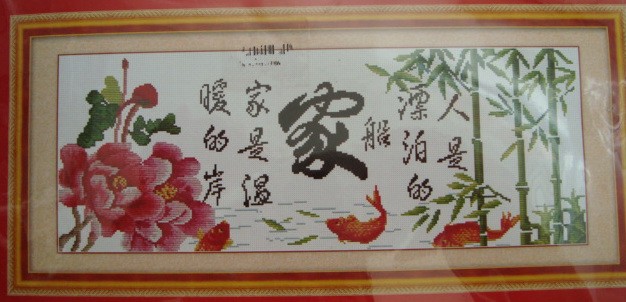 人是
漂泊的
船
家
家是温
暖的岸